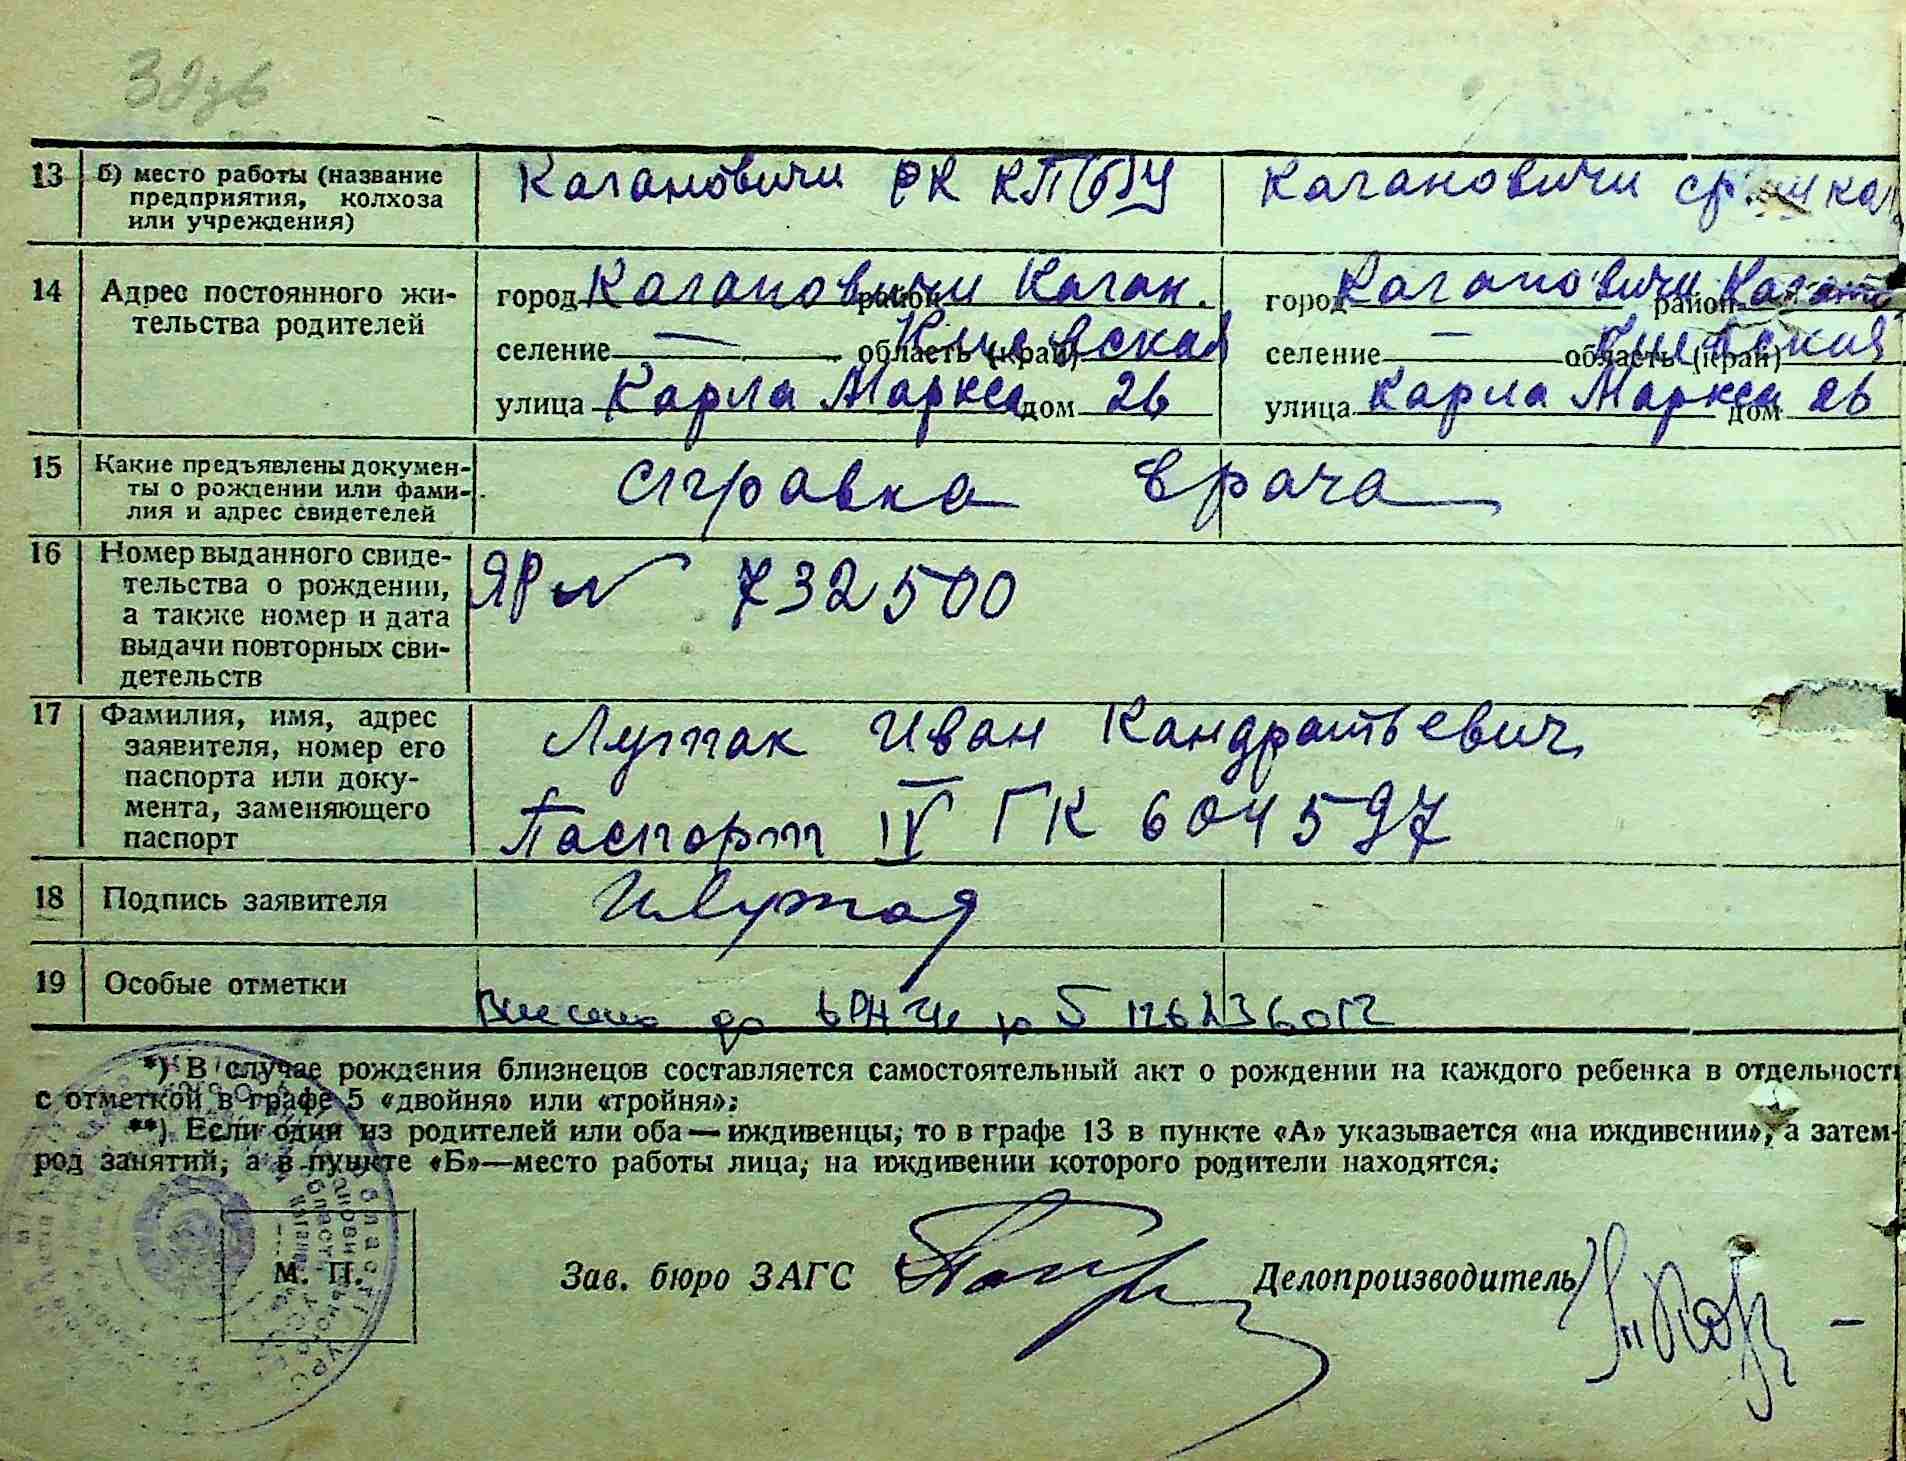 13 б) место работы (название Кагановичи РК КП(б)У Кагановичи
предприятия, колхоза
или учреждения)
14 Адрес постоянного жи- город Кагановичи район Каган. город Кагановичи район
тельства родителей селение — область (край) Киевская селение — область (край) Киевская
улица Карла Маркса дом 26 улица Карла Маркса дом 26
15 Какие предъявлены докумен- справка врача
ты о рождении или фами-
лия и адрес свидетелей
16 Номер выданного свиде- ЯР № 732500
тельства о рождении,
а также номер и дата
выдачи повторных сви-
детельств
17 Фамилия, имя, адрес Лупак Иван Кандратьевич
заявителя, номер его
паспорта или доку- Паспорт IV ГК 604597
мента, заменяющего
паспорт
18 Подпись заявителя
19 Особые отметки Внесено до
*) В случае рождения близнецов составляется самостоятельный акт о рождении на каждого ребенка в отдельности
с отметкой в графе 5 «двойня» или «тройня»;
**) Если один из родителей или оба — иждивенцы, то в графе 13 в пункте «А» указывается «на иждивении», а затем
род занятий, а в пункте «Б»—место работы лица, на иждивении которого родители находятся.
М. П. Зав. бюро ЗАГС Делопроизводитель